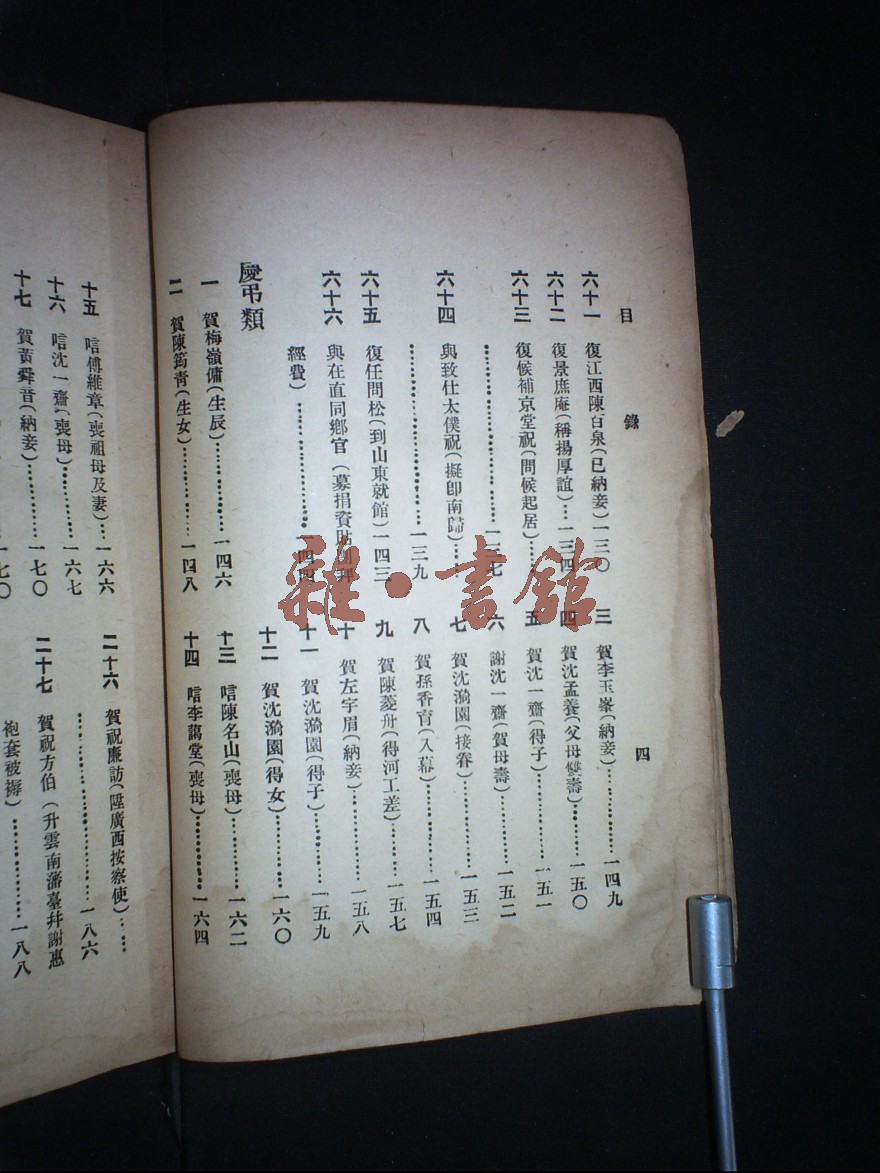 目錄 四
六十一 復江西陳百泉(已納妾)一三〇
六十二 復景庶庵(稱揚厚誼)…一三四
六十三 復候補京堂祝(問候起居)……
…………………………一三七
六十四 與致仕太僕祝(擬卽南歸)……
…………………………一三九
六十五 復任問松(到山東就館)一四三
六十六 與在直同鄉官(募捐資貼
經費)………………一四四
慶弔類
一 賀梅嶺傭(生辰)…………一四六
二 賀陳筠靑(生女)…………一四八
三 賀李玉峯(納妾)…………一四九
四 賀沈孟養(父母雙壽)……一五〇
五 賀沈一齋(得子)…………一五一
六 謝沈一齋(賀母壽)………一五二
七 賀沈漪園(接眷)…………一五三
八 賀孫香育(入幕)…………一五四
九 賀陳菱舟(得河工差)……一五七
十 賀左宇眉(納妾)…………一五八
十一 賀沈漪園(得子)………一五九
十二 賀沈漪園(得女)………一六〇
十三 唁陳名山(喪母)………一六二
十四 唁李藹堂(喪母)………一六四
十五 唁傅維章(喪祖母及妻)…一六六
十六 唁沈一齋(喪母)………一六七
十七 賀黃舜音(納妾)………一七〇
一七〇
二十六 賀祝廉訪(陞廣西按察使)……
…………………………一八六
二十七 賀祝方伯(升雲南藩臺幷謝惠
袍套被褥)……………一八八
雜·書館